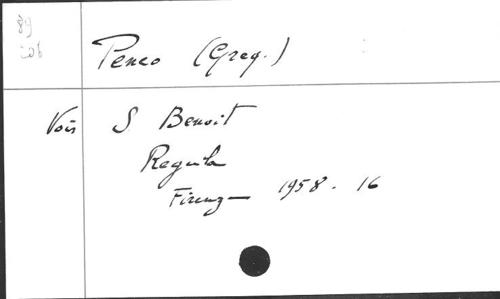 89
Penco (Greg.)
Voir S Benoit
Regula
Firenze 1958. 16